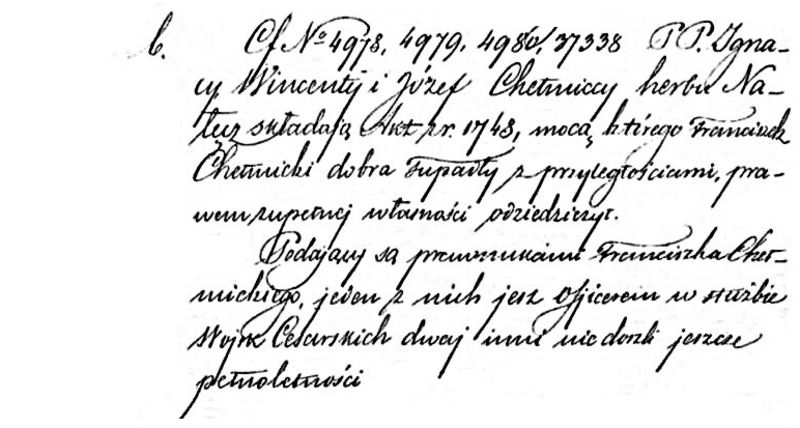 b. Cf No 4978, 4979, 4980, 37338 PP. Igna-
cy Wincenty i Józef Chełmiccy herbu Na-
łęcz składają Akt z r. 1748, mocą którego Franciszek
Chełmicki dobra Fupadły z przyległościami, pra-
wem zupełnej własności odziedziczył.
Podający są prawnukami Franciszka Cheł-
mickiego, jeden z nich jest Oficerem w służbie
Wojsk Cesarskich dwaj inni nie doszli jeszcze
pełnoletności